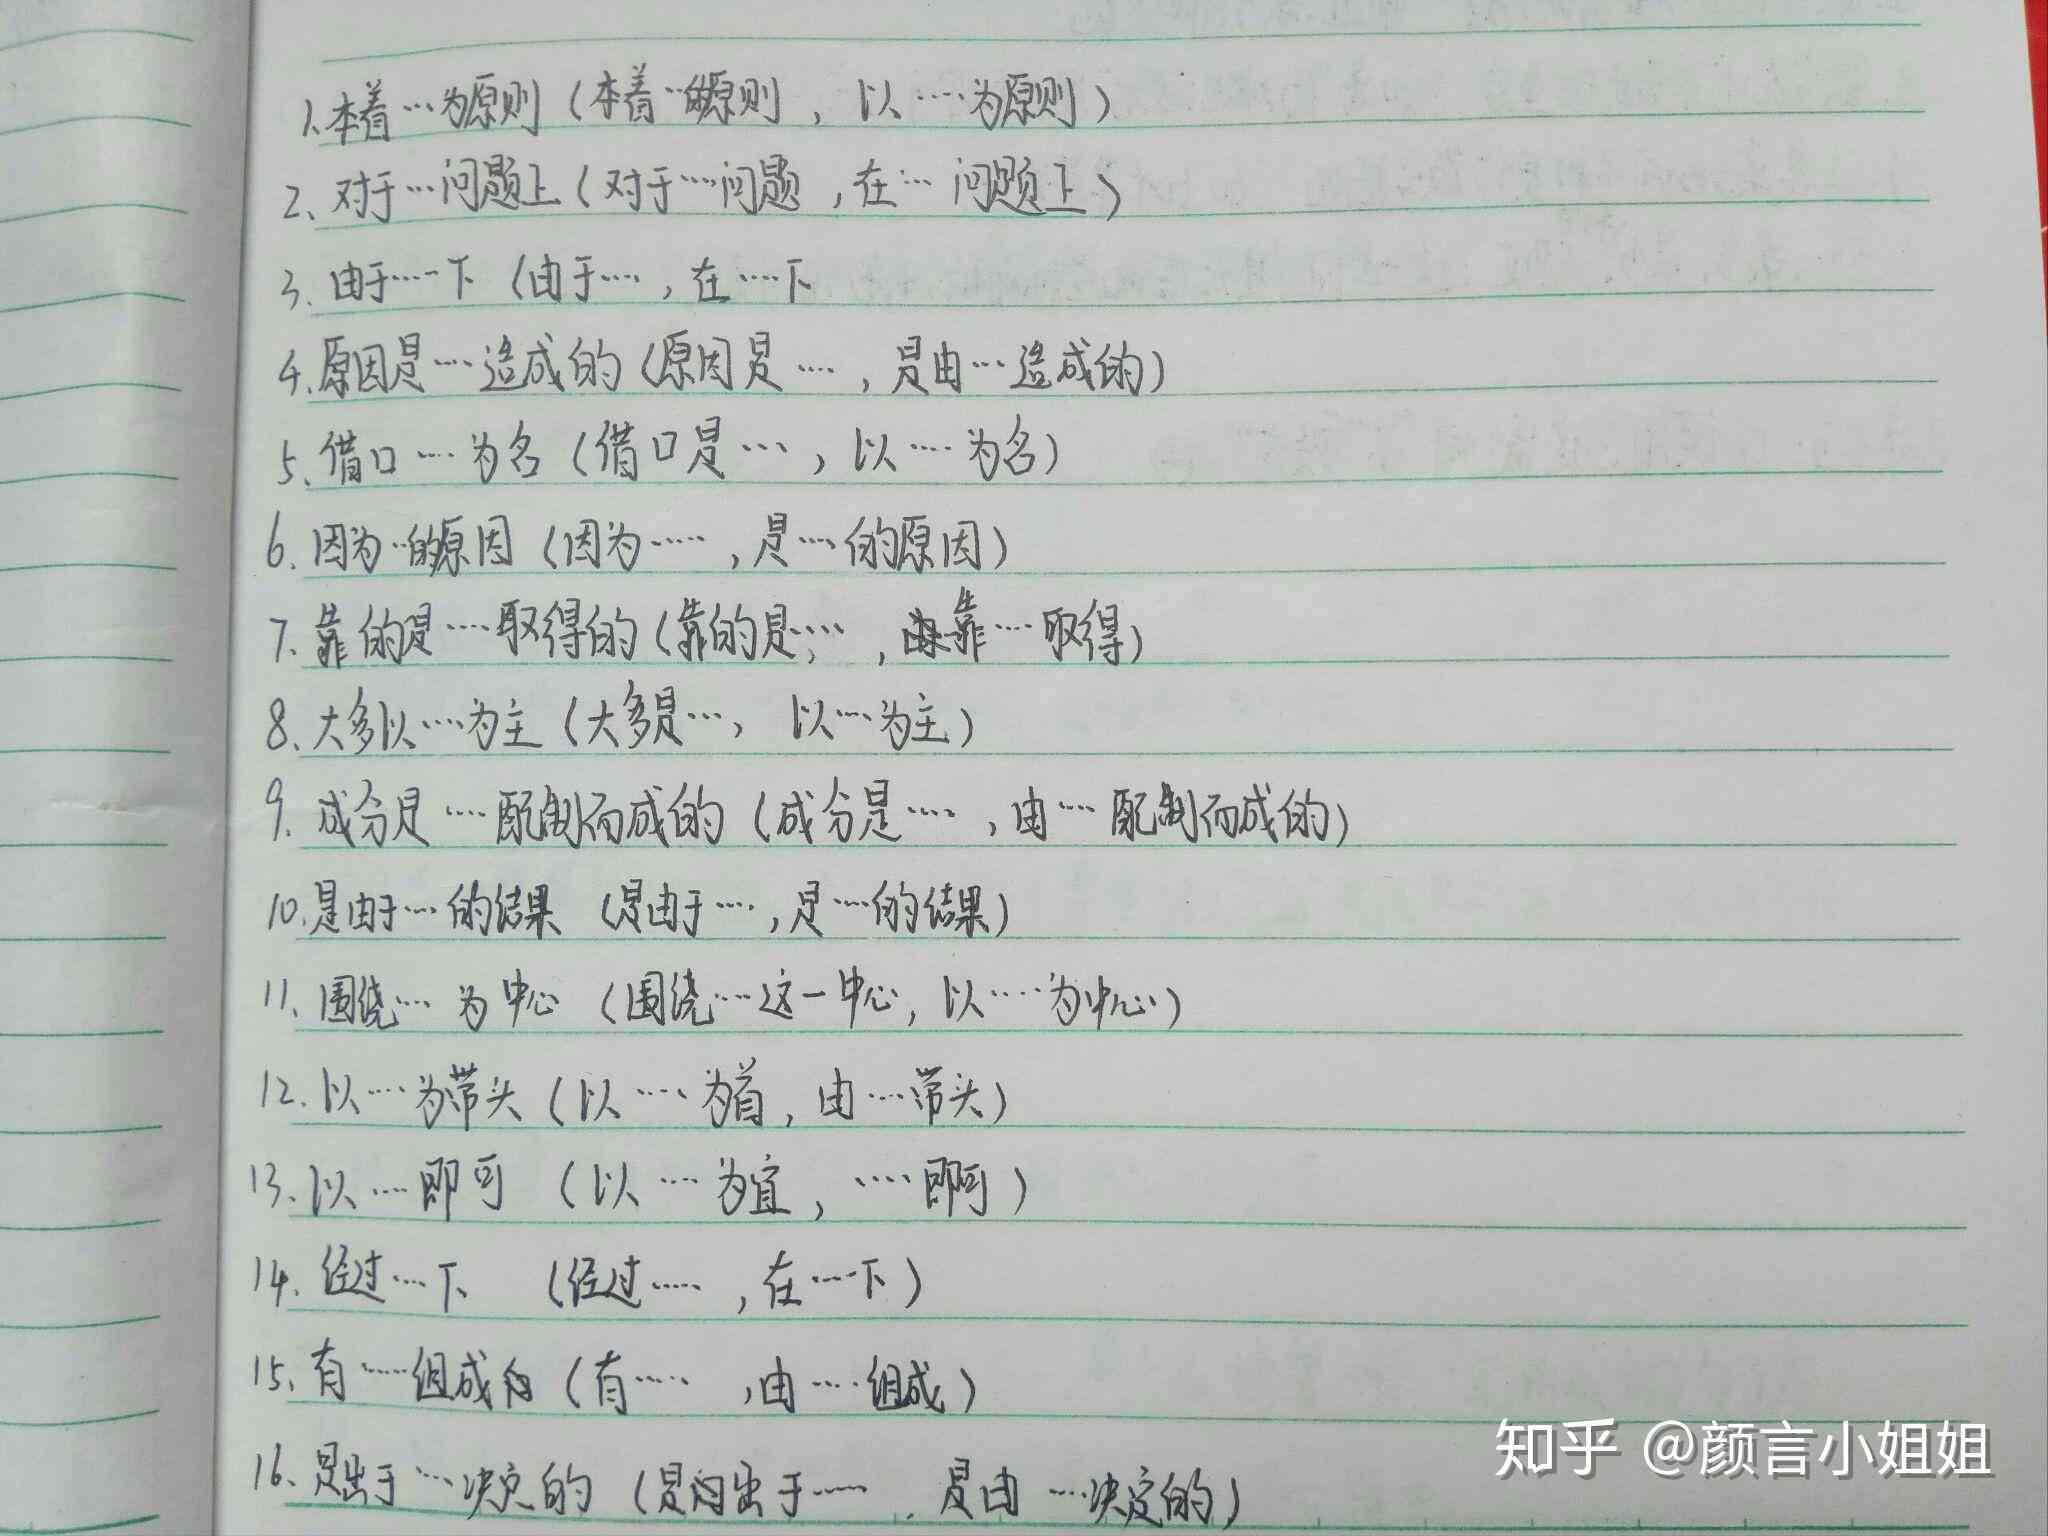 1.本着…为原则（本着…的原则，以……为原则）
2、对于…问题上（对于……问题，在…问题上）
3.由于……下（由于……，在……下
4.原因是……造成的（原因是……，是由…造成的）
5、借口……为名（借口是…，以……为名）
6.因为…的原因（因为……，是……的原因）
7.靠的是……取得的（靠的是……，靠……取得）
8、大多以……为主（大多是…，以……为主）
9.成分是……配制而成的（成分是……，由……配制而成的）
10.是由于……的结果（是由于……，是……的结果）
11、围绕……为中心（围绕……这一中心，以……为中心）
12.以……为带头（以……为首，由……带头）
13.以……即可（以……为宜，……即可）
14.经过……下（经过……，在……下）
15、有……组成的（有……，由……组成）
16.是出于…决定的（是出于……，是由…决定的）
知乎 @颜言小姐姐